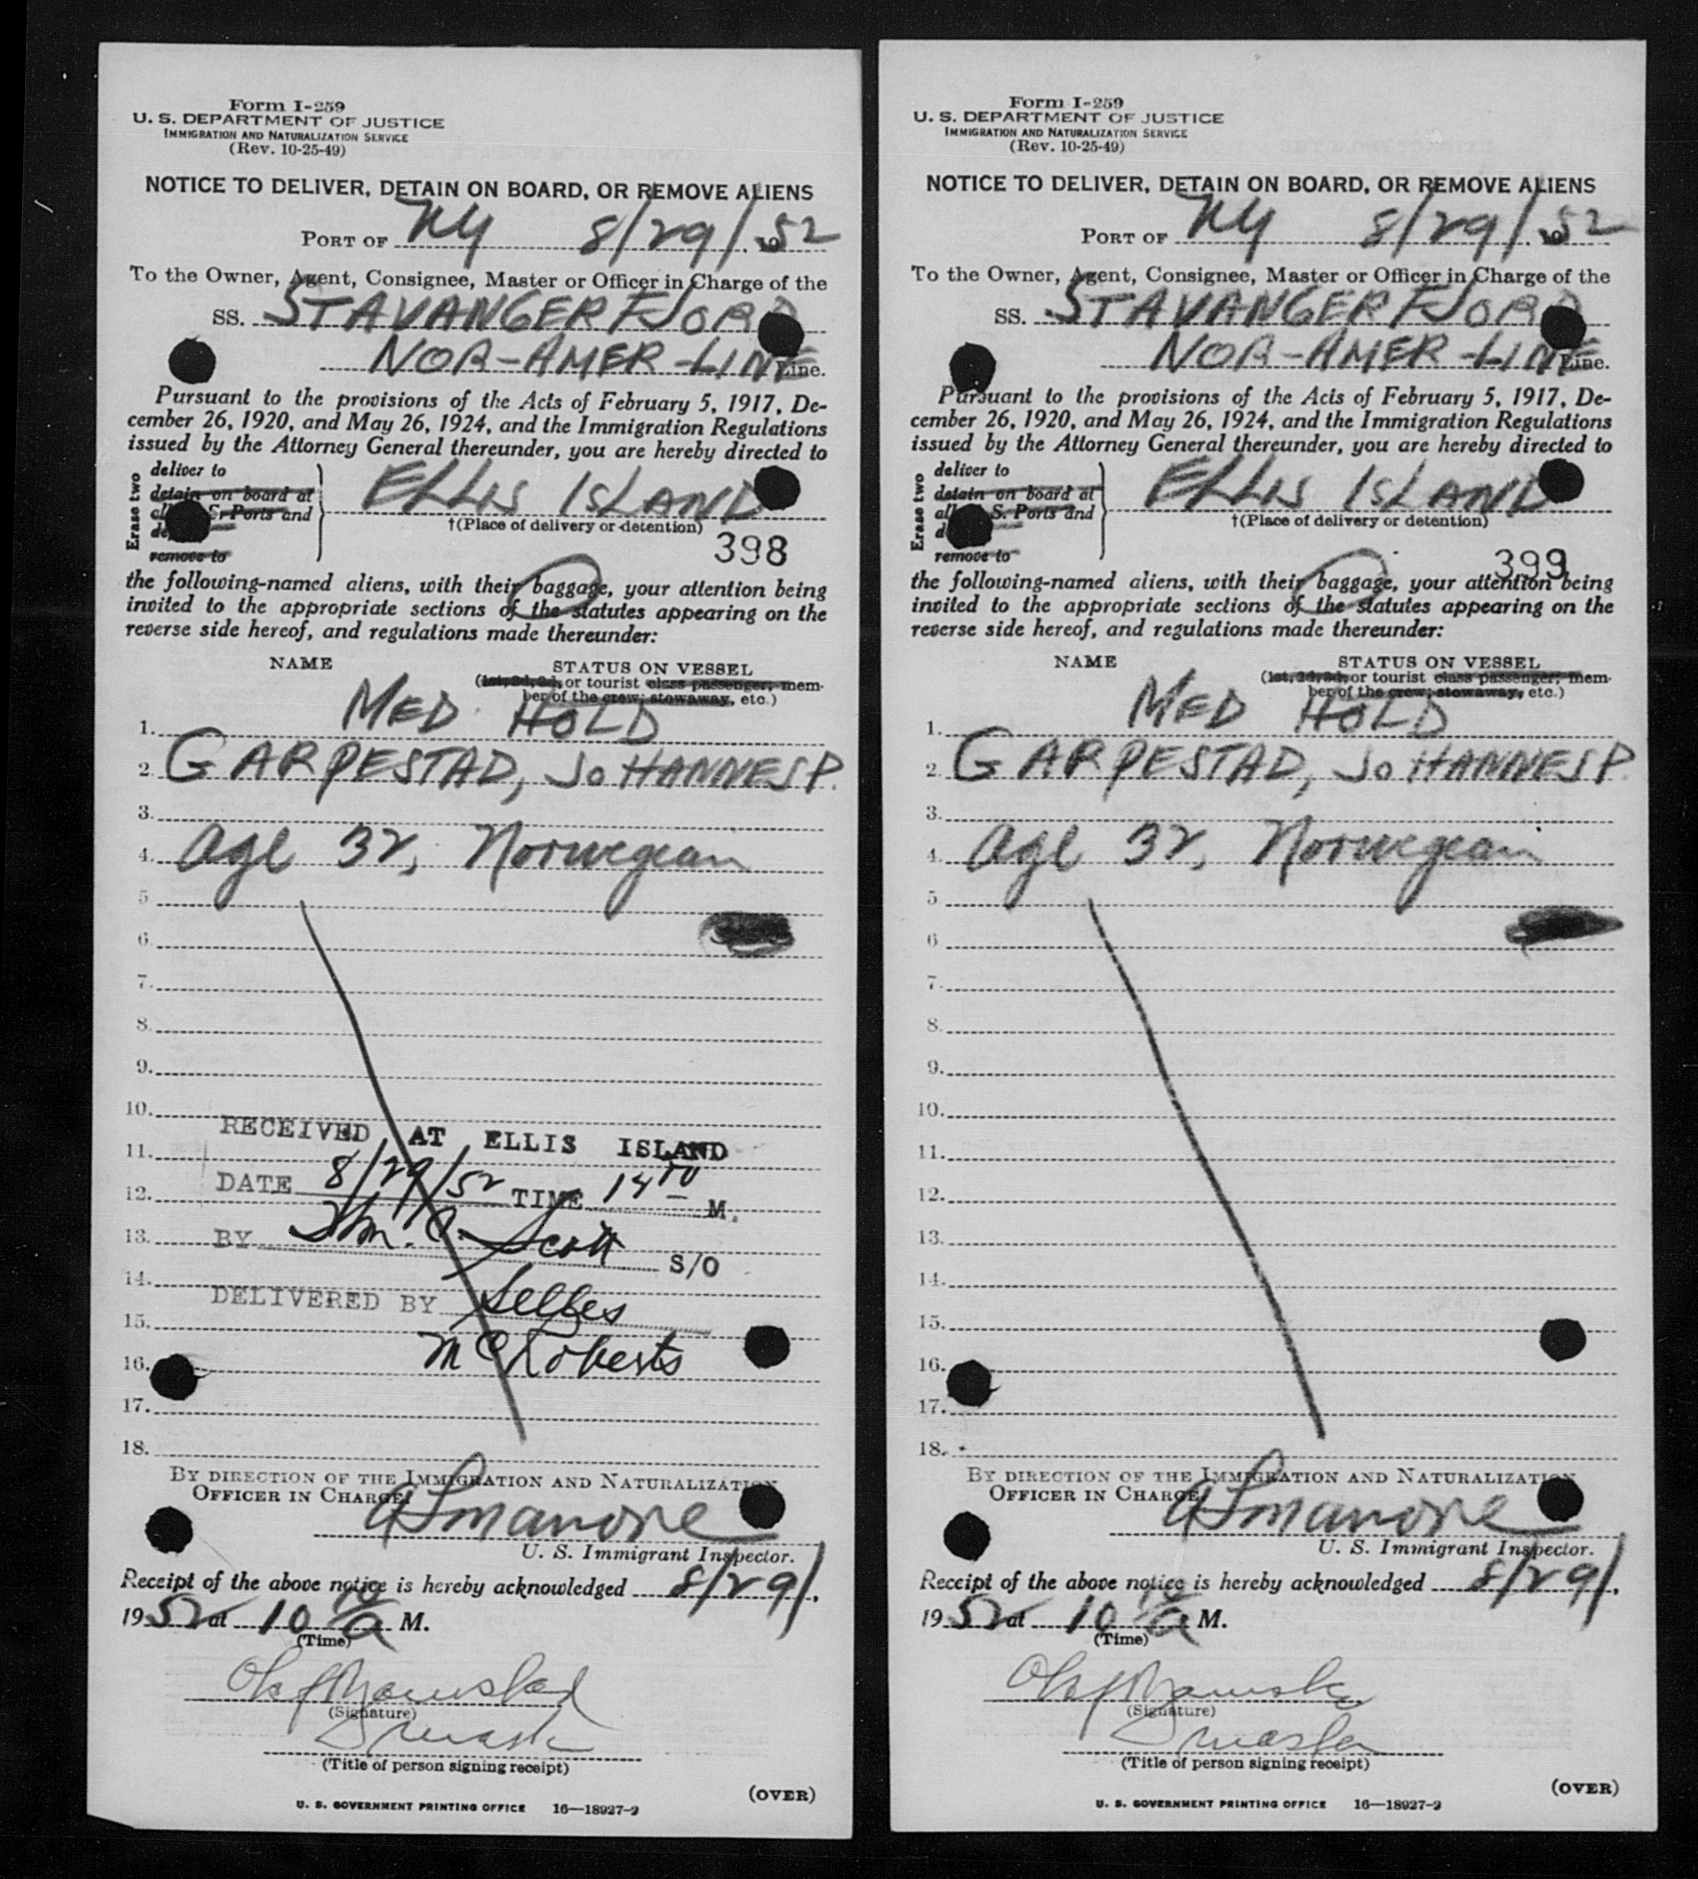 Form I-259
U. S. DEPARTMENT OF JUSTICE
IMMIGRATION AND NATURALIZATION SERVICE
(Rev. 10-25-49)
NOTICE TO DELIVER, DETAIN ON BOARD, OR REMOVE ALIENS
PORT OF NY 8/29/1952
To the Owner, Agent, Consignee, Master or Officer in Charge of the
SS. STAVANGERFJORD
NOR-AMER-LINE Line.
Pursuant to the provisions of the Acts of February 5, 1917, De-
cember 26, 1920, and May 26, 1924, and the Immigration Regulations
issued by the Attorney General thereunder, you are hereby directed to
Erase two
deliver to
detain on board at
S. Ports and
remove to
ELLIS ISLAND
†(Place of delivery or detention)
398
the following-named aliens, with their baggage, your attention being
invited to the appropriate sections of the statutes appearing on the
reverse side hereof, and regulations made thereunder:
NAME STATUS ON VESSEL
(1st, 2d, 3d, or tourist class passenger, mem-
ber of the crew, stowaway, etc.)
MED HOLD
1.
2. GARPESTAD, JOHANNES P.
3.
4. age 32, Norwegian
5.
6.
7.
8.
9.
10.
RECEIVED AT ELLIS ISLAND
11.
DATE 8/29/52 TIME 14 M.
12.
13. BY Wm. C. Scott S/O
14.
DELIVERED BY Selles
15.
McRoberts
16.
17.
18.
BY DIRECTION OF THE IMMIGRATION AND NATURALIZATION
OFFICER IN CHARGE,
U. S. Immigrant Inspector.
Receipt of the above notice is hereby acknowledged 8/29/,
1952 at 10 10/a M.
(Time)
(Signature)
(Title of person signing receipt)
(OVER)
U. S. GOVERNMENT PRINTING OFFICE 16—18927-2
Form I-259
U. S. DEPARTMENT OF JUSTICE
IMMIGRATION AND NATURALIZATION SERVICE
(Rev. 10-25-49)
NOTICE TO DELIVER, DETAIN ON BOARD, OR REMOVE ALIENS
PORT OF NY 8/29/1952
To the Owner, Agent, Consignee, Master or Officer in Charge of the
SS. STAVANGERFJORD
NOR-AMER-LINE Line.
Pursuant to the provisions of the Acts of February 5, 1917, De-
cember 26, 1920, and May 26, 1924, and the Immigration Regulations
issued by the Attorney General thereunder, you are hereby directed to
Erase two
deliver to
detain on board at
all S. Ports and
remove to
ELLIS ISLAND
†(Place of delivery or detention)
399
the following-named aliens, with their baggage, your attention being
invited to the appropriate sections of the statutes appearing on the
reverse side hereof, and regulations made thereunder:
NAME STATUS ON VESSEL
(1st, 2d, 3d, or tourist class passenger, mem-
ber of the crew, stowaway, etc.)
MED HOLD
1.
2. GARPESTAD, JOHANNES P.
3.
4. age 32, Norwegian
5.
6.
7.
8.
9.
10.
11.
12.
13.
14.
15.
16.
17.
18.
BY DIRECTION OF THE IMMIGRATION AND NATURALIZATION
OFFICER IN CHARGE,
U. S. Immigrant Inspector.
Receipt of the above notice is hereby acknowledged 8/29/,
1952 at 10 10/a M.
(Time)
(Signature)
(Title of person signing receipt)
(OVER)
U. S. GOVERNMENT PRINTING OFFICE 16—18927-2